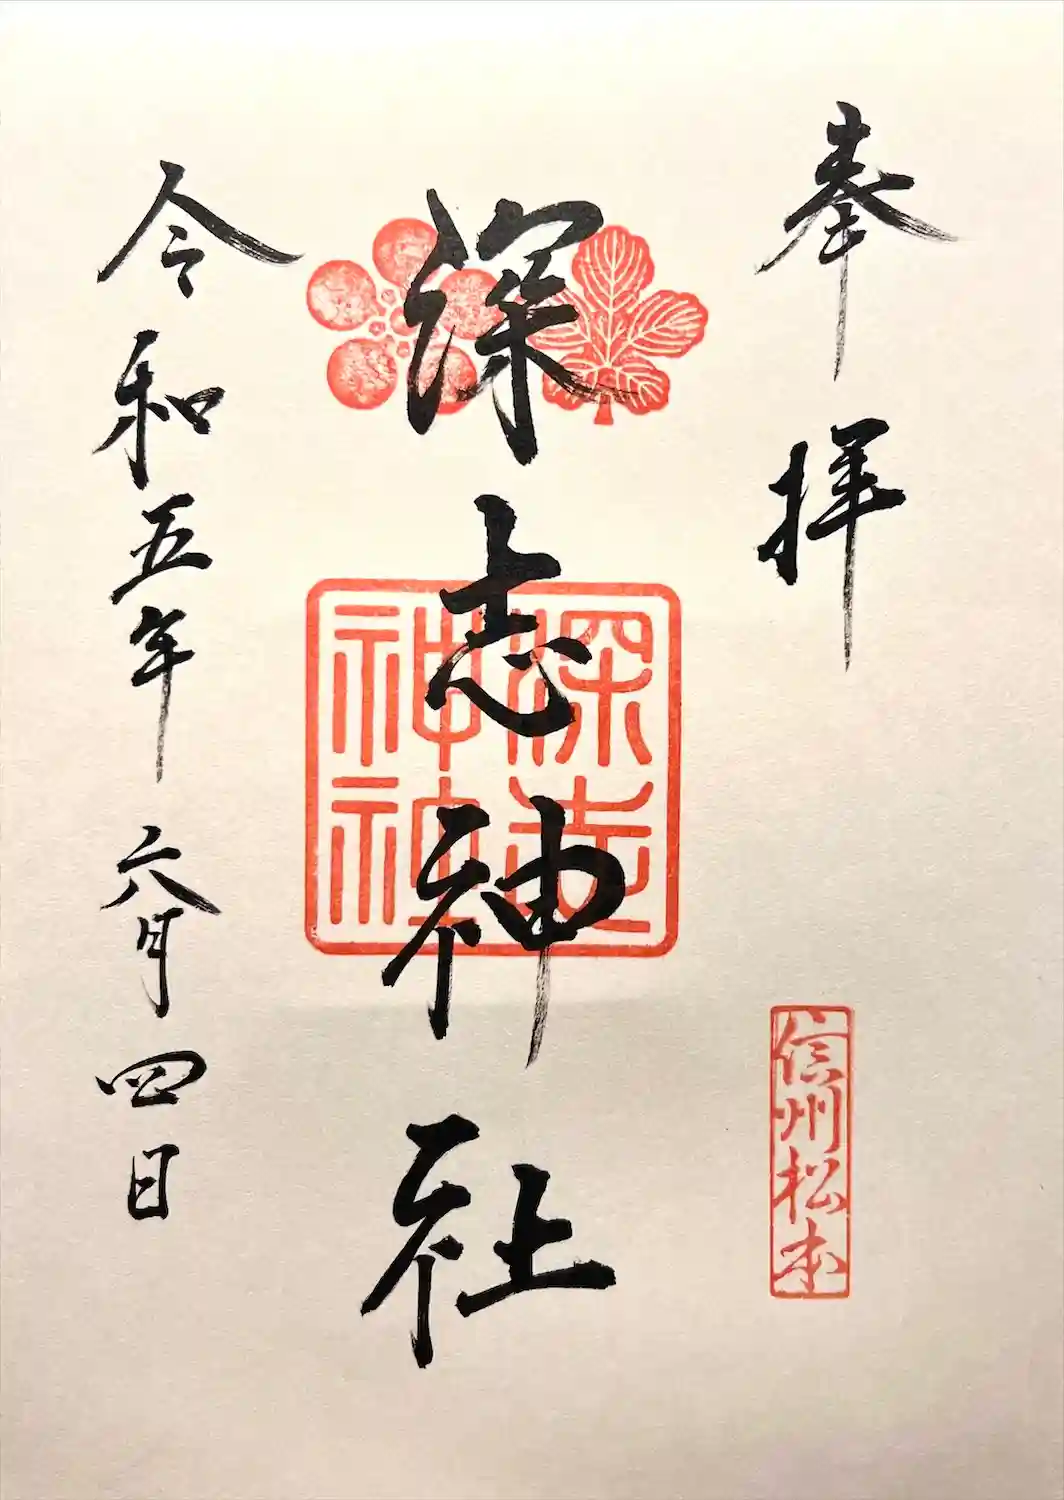 奉拝
信州松本
深志神社
深志
神社
令和五年六月四日